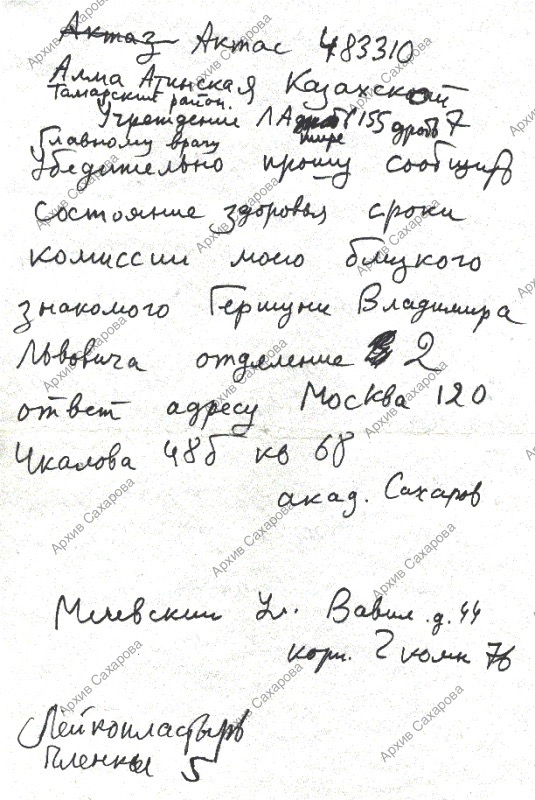 Актаз Актас 483310
Алма Атинская Казахской
Таларский район.
Учреждении ЛА 155 дробь 7
тире
Главному врачу
Убедительно прошу сообщить
состояние здоровья сроки
комиссии моего близкого
знакомого Гершуни Владимира
Львовича отделение 2
ответ адресу Москва 120
Чкалова 48б кв 68
акад. Сахаров
ул. Вавил. д. 44
корп. 2 комн 76
Лейкопластырь
Пленки 5
Архив Сахарова